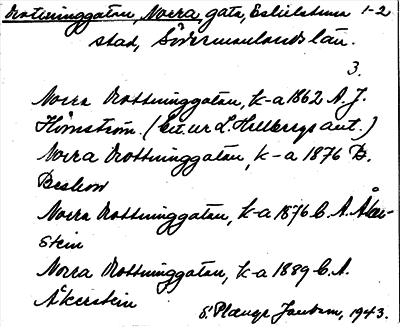 Drottninggatan, Norra, gata, Eskilstuna 1-2
stad, Södermanlands län.
3.
Norra Drottninggatan, k-a 1862 A. J.
Hörnström. (Cit. ur L. Hellbergs ant.)
Norra Drottninggatan, k-a 1876 B.
Beskow
Norra Drottninggatan, k-a 1876 C. A. Åker-
stein
Norra Drottninggatan, k-a 1889 C. A.
Åkerstein
Jansson, 1943.